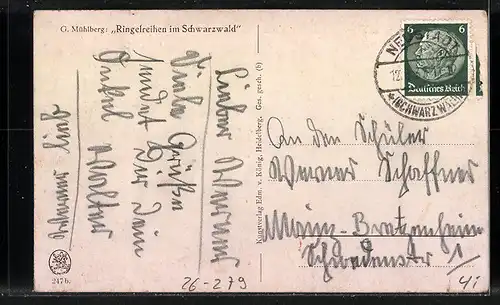 G. Mühlberg: „Ringelreihen im Schwarzwald"
6 6
Deutsches Reich
(SCHWARZWALD)
Lieber Werner
Viele Grüße
sendet Dir Dein
Onkel Walter
Werner lieb
Kunstverlag Edm. v. König, Heidelberg. Ges. gesch. (6)
An den Schüler
Werner Schaffner
Mainz-Bretzenheim
Schwedenstr 1
2176.
26-279
41